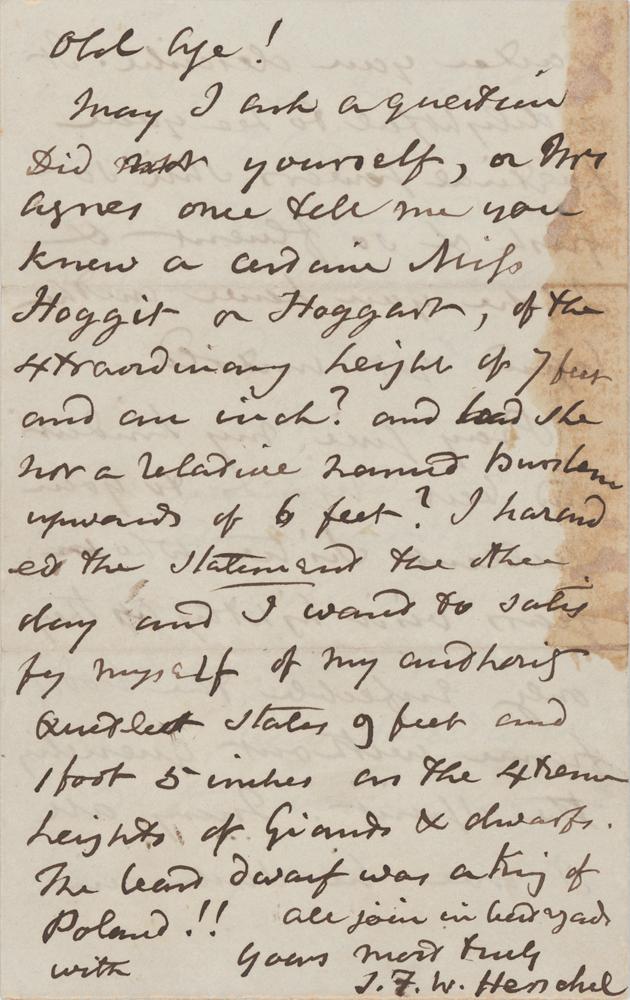 Old Age!
May I ask a question
Did not yourself, or Mrs
Agnes once tell me you
knew a certain Miss
Hoggit or Hoggart, of the
extraordinary height of 7 feet
and an inch? and had she
not a relative named
upwards of 6 feet? I hazard
ed the statement the other
day and I want to satis
fy myself of my authority
Quetelet states 9 feet and
1 foot 5 inches as the extreme
heights of Giants & dwarfs.
The least dwarf was a King of
Poland!! all join in best regards
with yours most truly
J. F. W. Herschel